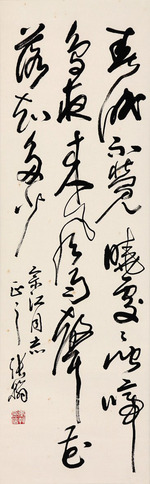 春眠不觉晓处处闻啼
鸟夜来风雨声花
落知多少
余江同志
正之
张翰